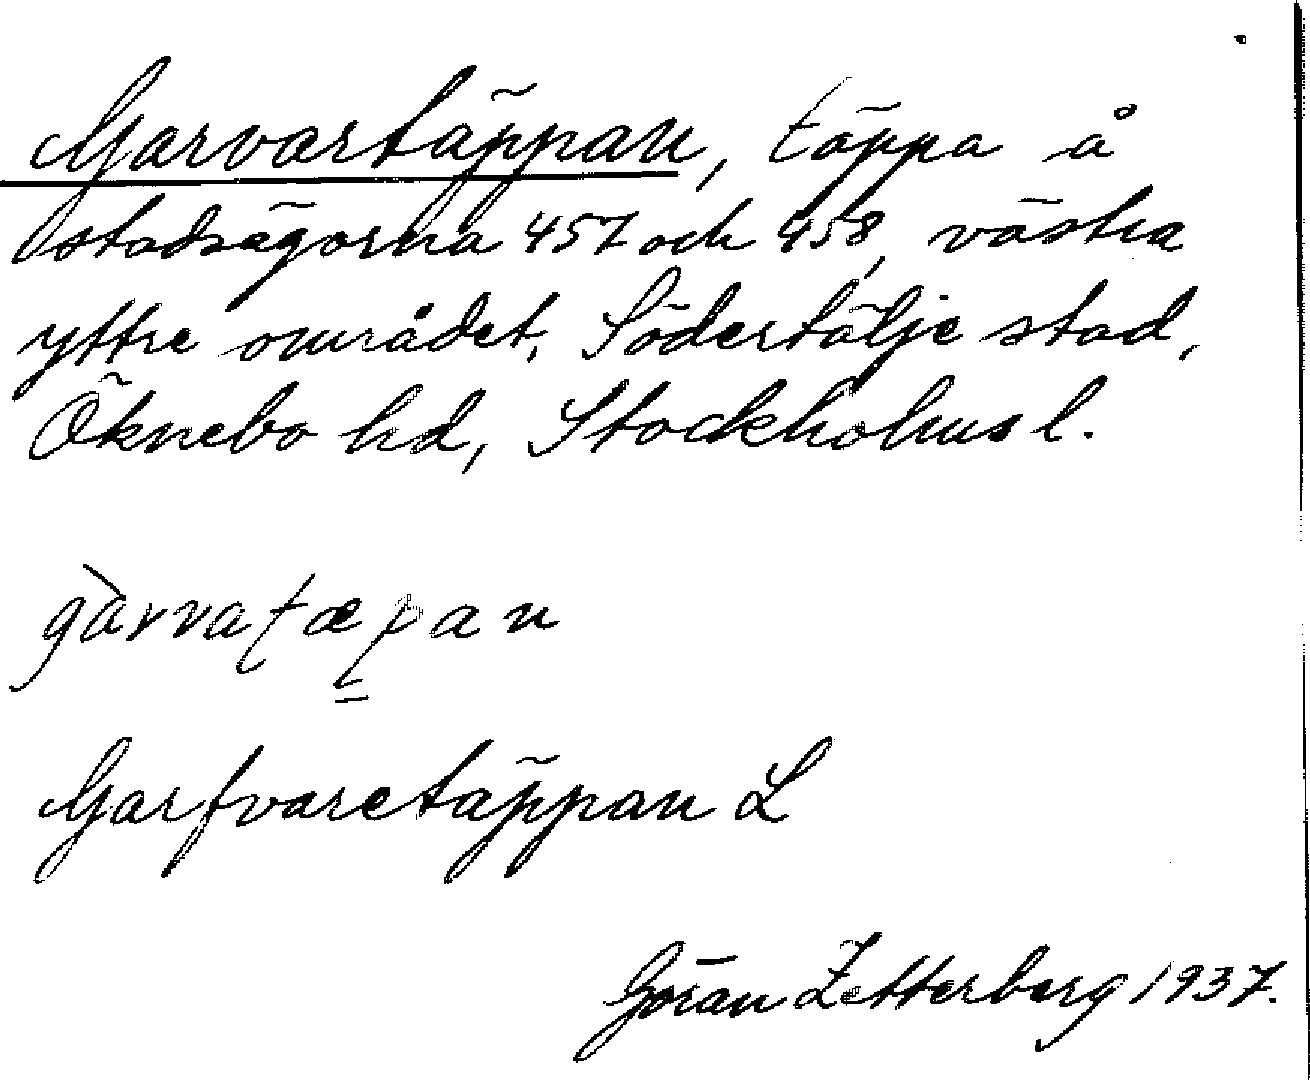 Garvartäppan, täppa å
stadsägorna 457 och 458, västra
yttre området, Södertälje stad,
Öknebo hd, Stockholms l.
gàrvatæpan
Garfvaretäppan L
Göran Zetterberg 1937.